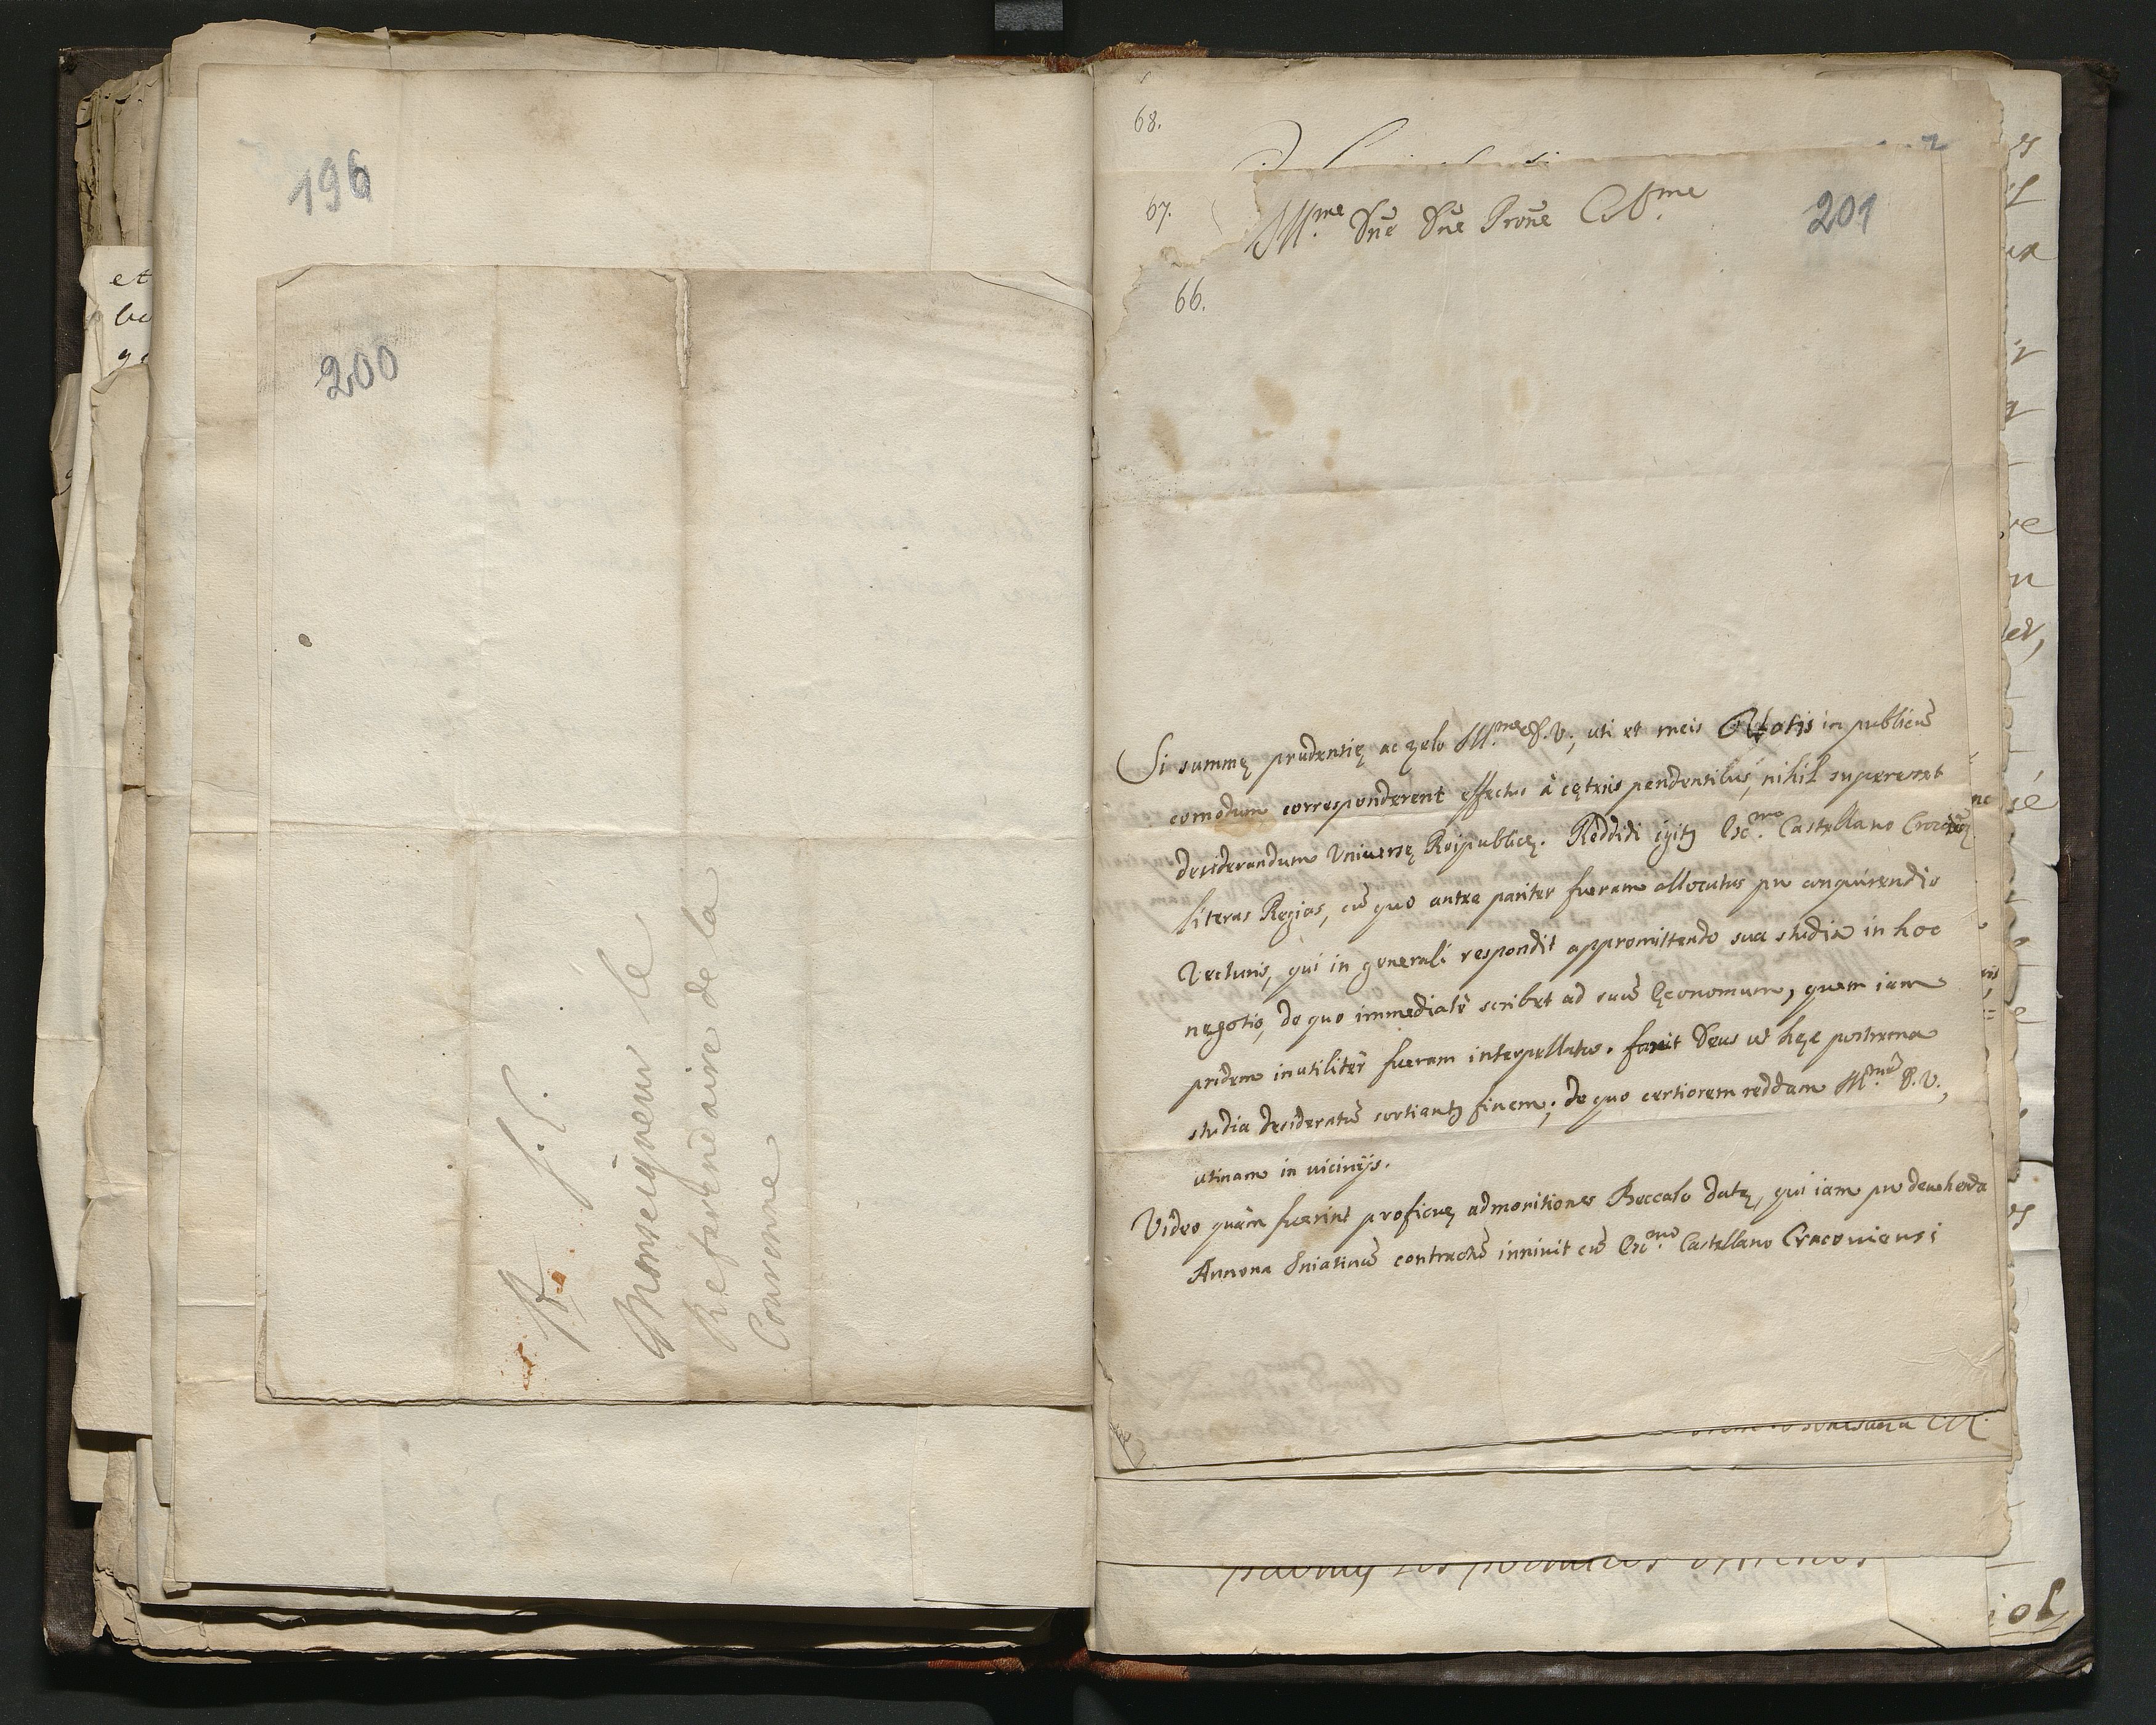 196
200
A
Monseigneur le
Referendaire de la
Couronne
68.
67.
66.
201
Illme Dne Dne Prone Colme
Si summę prudentię ac zelo Illme D. V., uti et meis Votis in publicũ
comodum corresponderent effectus à cęteris pendentibus, nihil superesset
desiderandum Universę Reipublicę. Reddidi igitr Excmo Castellano
literas Regias, cũ quo antea pariter fueram allocutus pro conquirendis
Vecturis, qui in generali respondit appromittendo sua studia in hoc
negotio, de quo immediatè scribet ad suũ Oeconomum, quem iam
pridem inutilitèr fueram interpellatus. faxit Deus ut hęc postrema
studia desideratũ sortiantr finem; de quo certiorem reddam Illmã D. V.,
utinam in vicinijs.
Video quàm fuerint proficuę admonitiones Boccalo datę, qui iam pro devehenda
Annona Sniatinũ contractũ innivit cũ Excmo Castellano Cracoviensi